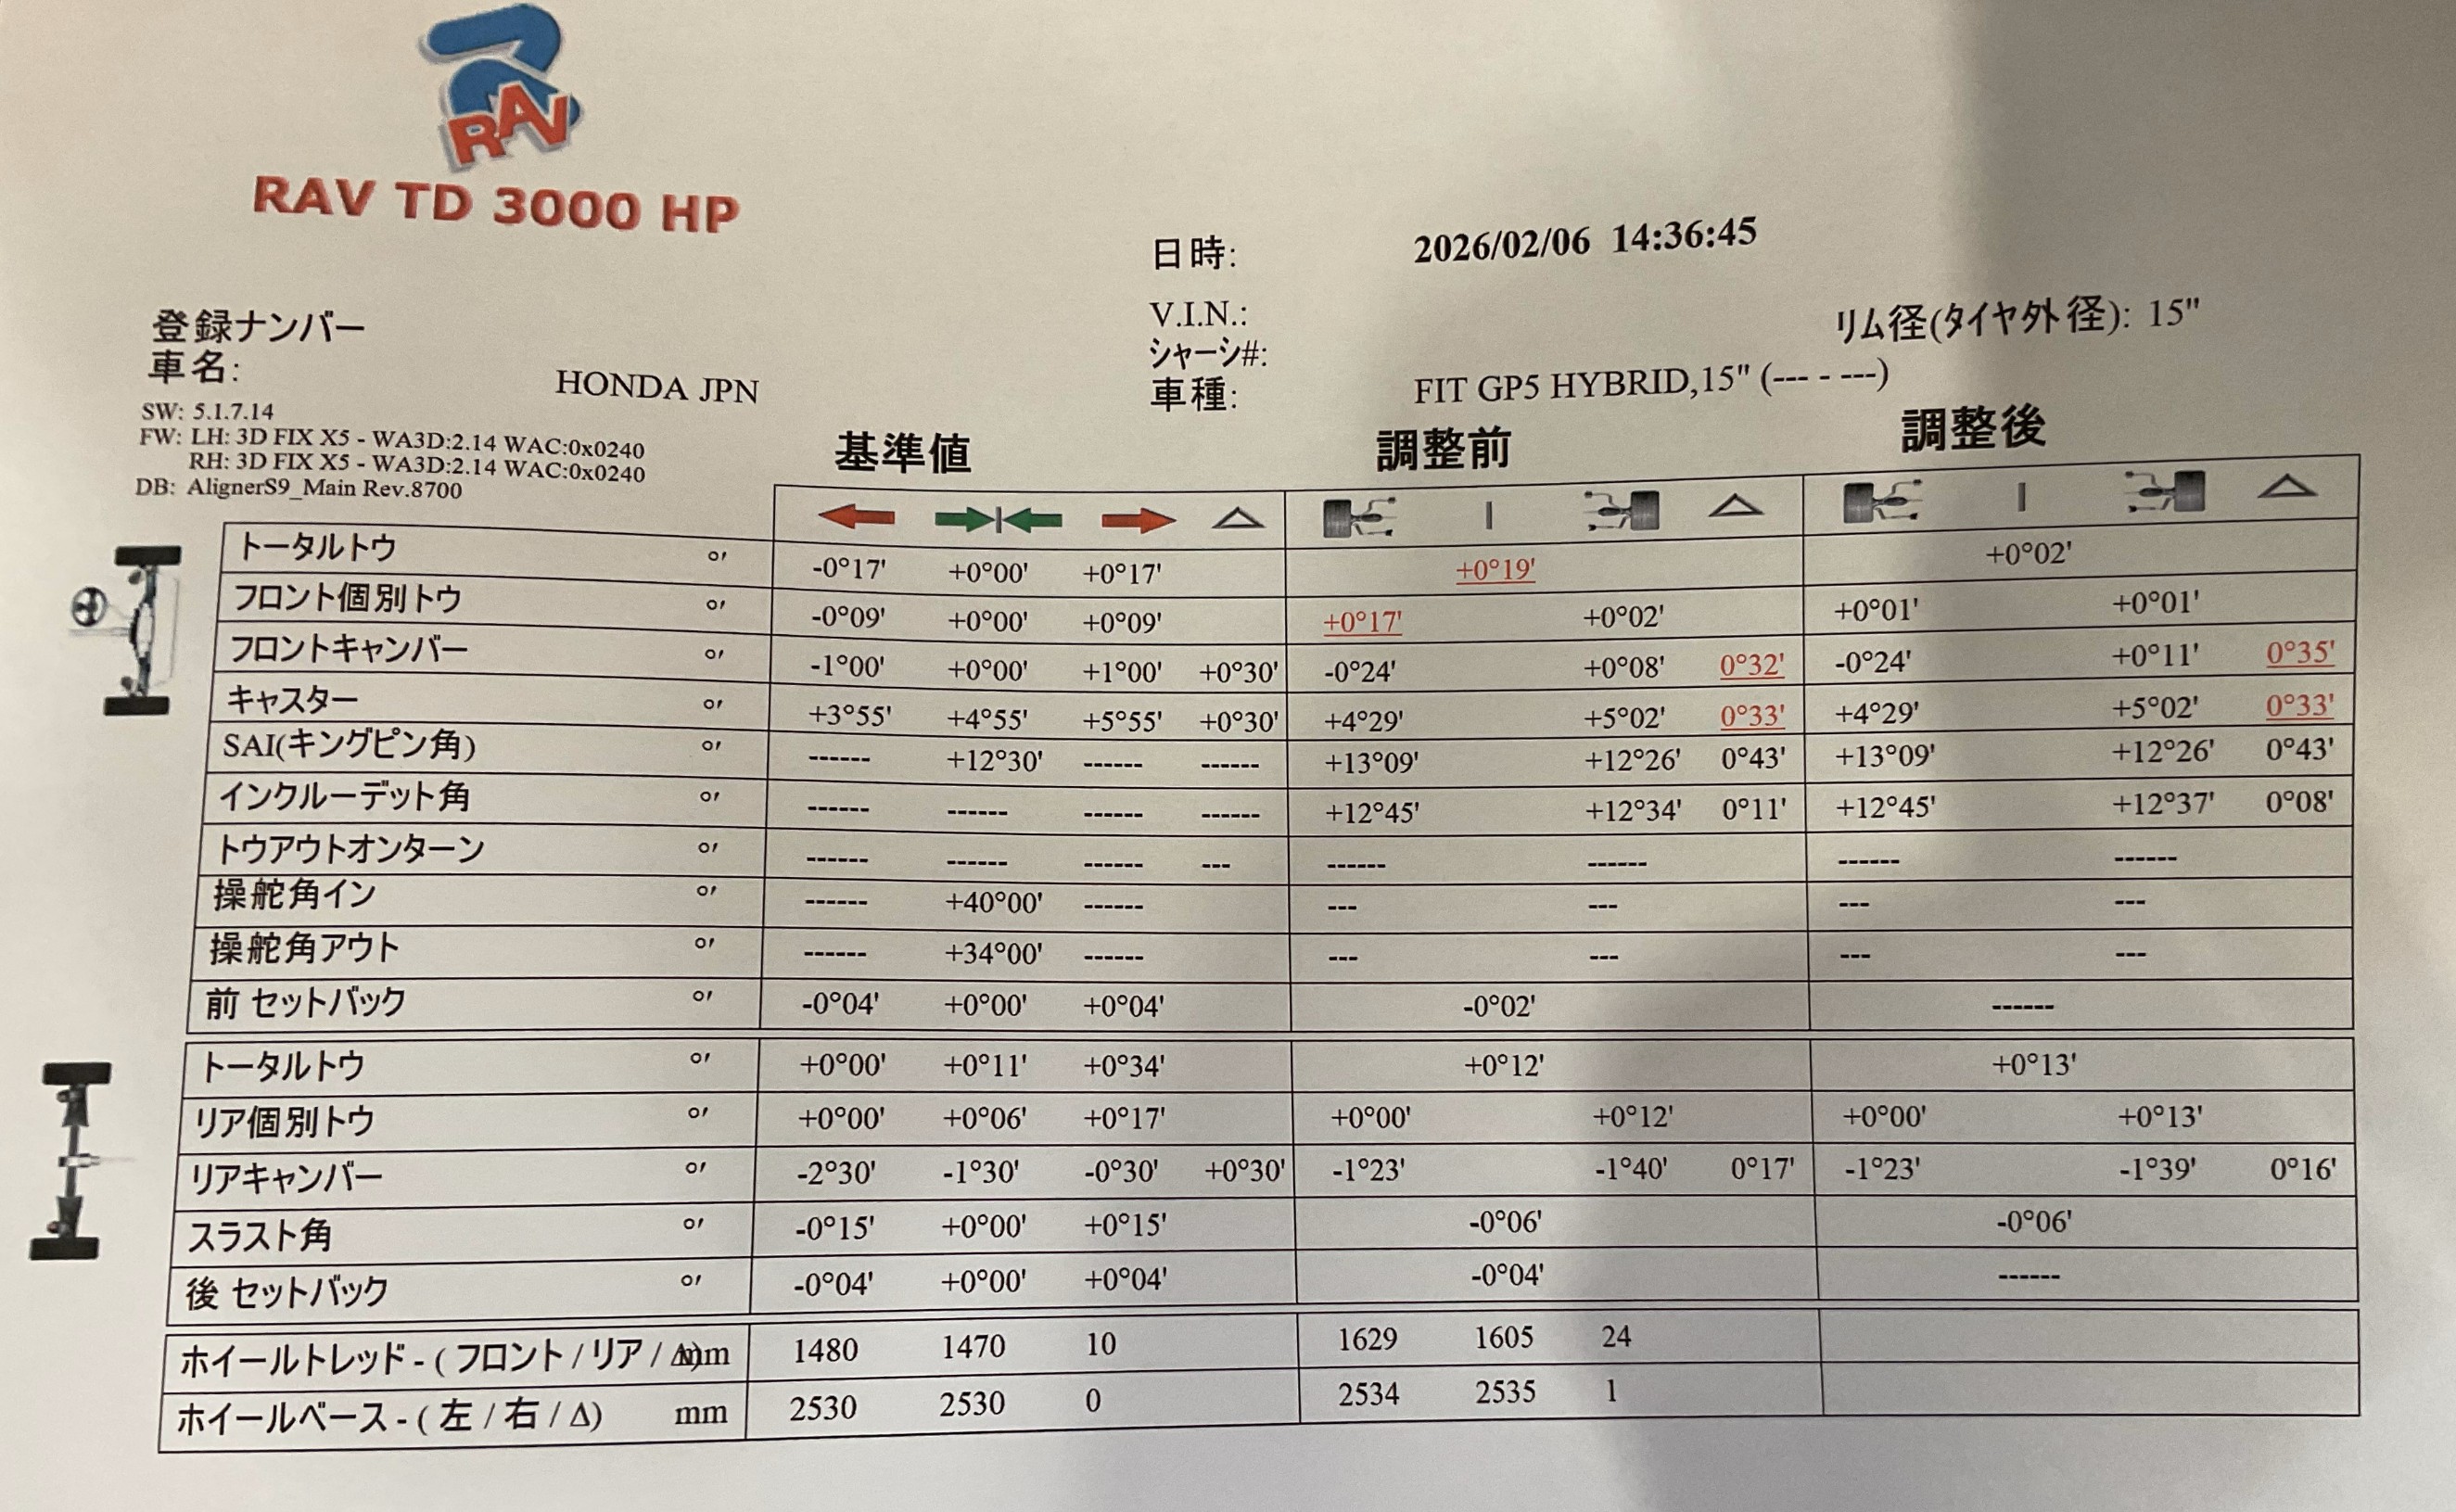 RAV
RAV TD 3000 HP
日時: 2026/02/06 14:36:45
V.I.N.:
登録ナンバー リム径(タイヤ外径): 15"
シャーシ#:
車名: HONDA JPN 車種: FIT GP5 HYBRID,15" (--- - ---)
SW: 5.1.7.14
FW: LH: 3D FIX X5 - WA3D:2.14 WAC:0x0240
RH: 3D FIX X5 - WA3D:2.14 WAC:0x0240
DB: AlignerS9_Main Rev.8700
基準値 調整前 調整後
トータルトウ °' -0°17' +0°00' +0°17' +0°19' +0°02'
フロント個別トウ °' -0°09' +0°00' +0°09' +0°17' +0°02' +0°01' +0°01'
フロントキャンバー °' -1°00' +0°00' +1°00' +0°30' -0°24' +0°08' 0°32' -0°24' +0°11' 0°35'
キャスター °' +3°55' +4°55' +5°55' +0°30' +4°29' +5°02' 0°33' +4°29' +5°02' 0°33'
SAI(キングピン角) °' ------ +12°30' ------ ------ +13°09' +12°26' 0°43' +13°09' +12°26' 0°43'
インクルーデット角 °' ------ ------ ------ ------ +12°45' +12°34' 0°11' +12°45' +12°37' 0°08'
トウアウトオンターン °' ------ ------ ------ --- ------ ------ ------ ------
操舵角イン °' ------ +40°00' ------ --- --- --- ---
操舵角アウト °' ------ +34°00' ------ --- --- --- ---
前 セットバック °' -0°04' +0°00' +0°04' -0°02' ------
トータルトウ °' +0°00' +0°11' +0°34' +0°12' +0°13'
リア個別トウ °' +0°00' +0°06' +0°17' +0°00' +0°12' +0°00' +0°13'
リアキャンバー °' -2°30' -1°30' -0°30' +0°30' -1°23' -1°40' 0°17' -1°23' -1°39' 0°16'
スラスト角 °' -0°15' +0°00' +0°15' -0°06' -0°06'
後 セットバック °' -0°04' +0°00' +0°04' -0°04' ------
ホイールトレッド - ( フロント / リア / Δ) mm 1480 1470 10 1629 1605 24
ホイールベース - ( 左 / 右 / Δ) mm 2530 2530 0 2534 2535 1